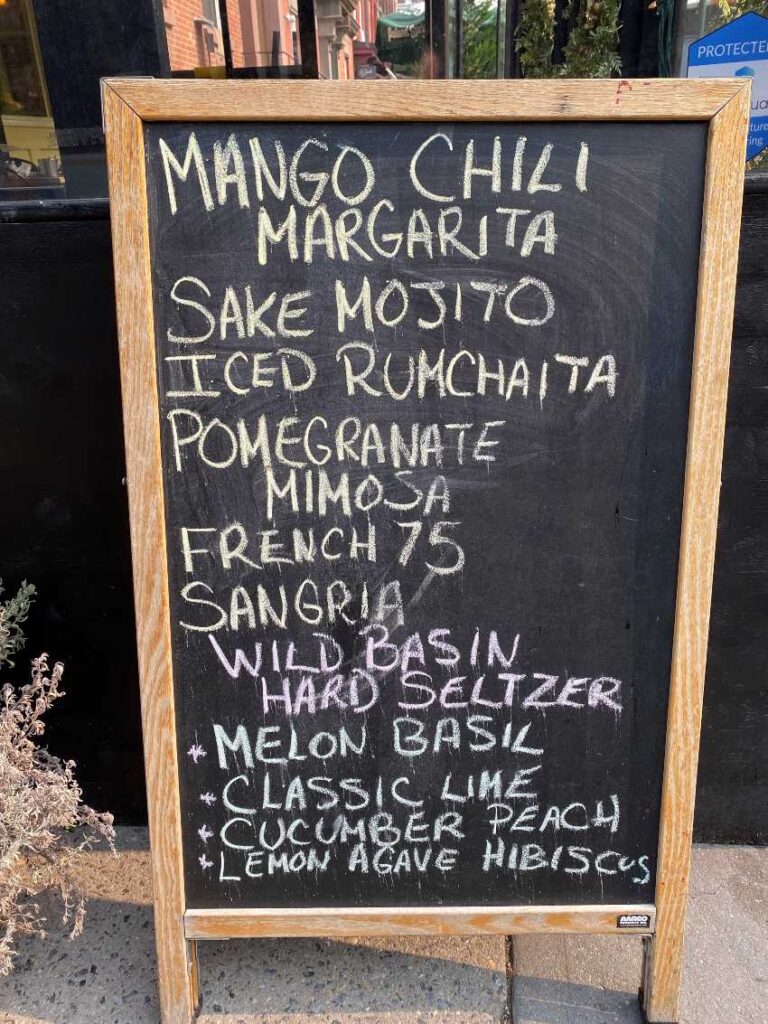 MANGO CHILI
MARGARITA
SAKE MOJITO
ICED RUMCHAITA
POMEGRANATE
MIMOSA
FRENCH 75
SANGRIA
WILD BASIN
HARD SELTZER
* MELON BASIL
* CLASSIC LIME
* CUCUMBER PEACH
* LEMON AGAVE HIBISCUS
AARCO
PROTECTED